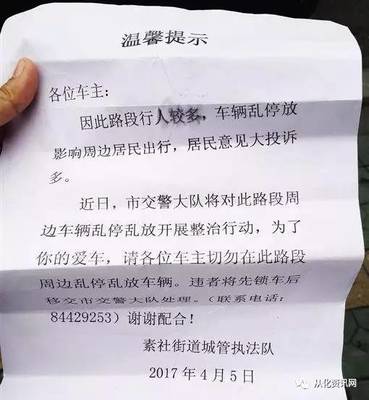 温馨提示
各位车主：
因此路段行人较多，车辆乱停放
影响周边居民出行，居民意见大投诉
多。
近日，市交警大队将对此路段周
边车辆乱停乱放开展整治行动，为了
你的爱车，请各位车主切勿在此路段
周边乱停乱放车辆。违者将先锁车后
移交市交警大队处理。（联系电话：
84429253）谢谢配合！
素社街道城管执法队
2017年4月5日
从化资讯网